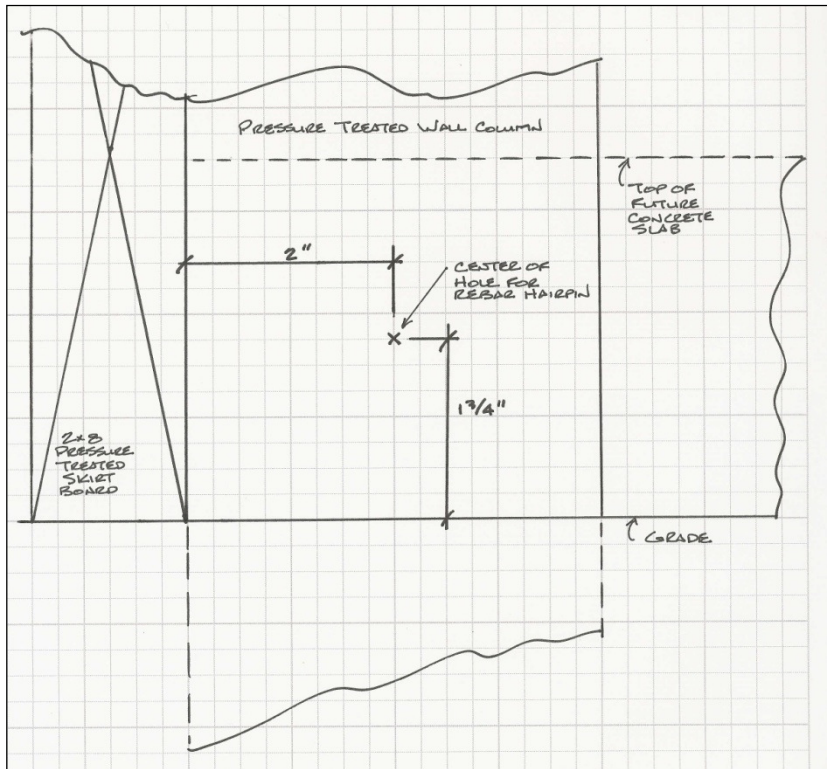 PRESSURE TREATED WALL COLUMN
TOP OF
FUTURE
CONCRETE
SLAB
2"
CENTER OF
HOLE FOR
REBAR HAIRPIN
1 3/4"
2x8
PRESSURE
TREATED
SKIRT
BOARD
GRADE